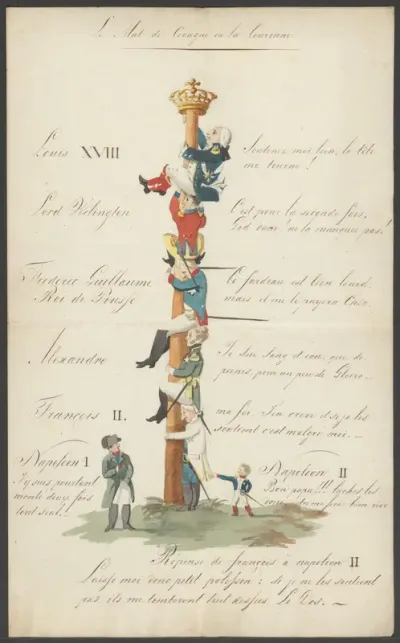 Le Mat de Cocagne ou la Couronne
Louis XVIII
Soutenez moi bien, la tête
me tourne !
Lord Velington
C'est pour la seconde fois,
God dam' ne la manquez pas !
Frederic Guillaume
Roi de Prusse
Ce fardeau est bien lourd,
mais il me le payera Cher
Alexandre
Je sue sang et eau, que de
peines, pour un peu de Gloire —
François II.
ma foi
si je les
soutient c'est malgré moi. —
Napoléon 1
J'y suis pourtant
monté deux fois
tout seul !!
Napoléon II
Bon papa !!! lachez les
Réponse de françois à napoléon II
Laisse moi donc petit polisson : si je ne les soutient
pas, ils me tomberont tout dessus Le Dos. —